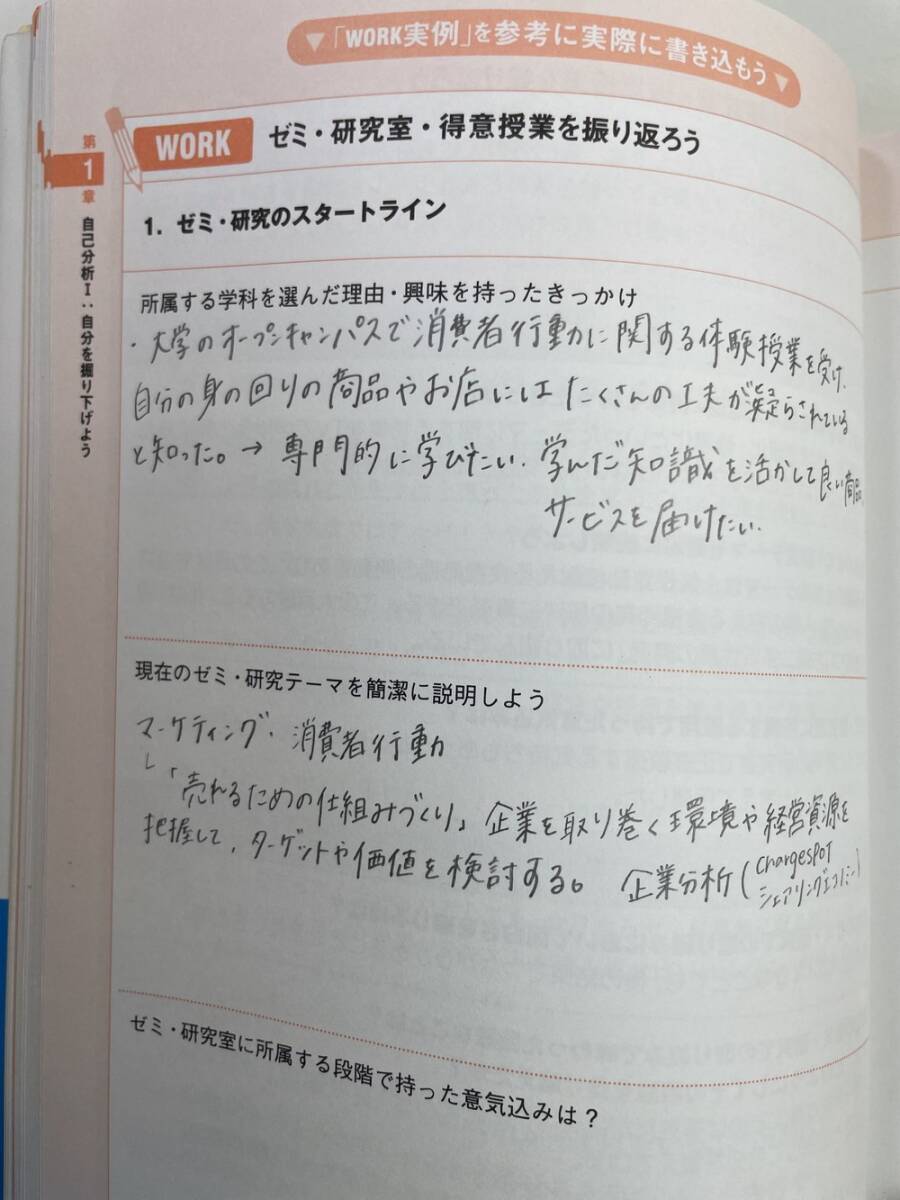 ▼「WORK実例」を参考に実際に書き込もう▼
WORK ゼミ・研究室・得意授業を振り返ろう
第1章 自己分析Ⅰ:自分を掘り下げよう
1. ゼミ・研究のスタートライン
所属する学科を選んだ理由・興味を持ったきっかけ
・大学のオープンキャンパスで消費者行動に関する体験授業を受け、
自分の身の回りの商品やお店にはたくさんの工夫が凝らされている
と知った。→専門的に学びたい、学んだ知識を活かして良い商品、
サービスを届けたい。
現在のゼミ・研究テーマを簡潔に説明しよう
マーケティング・消費者行動
「売れるための仕組みづくり」企業を取り巻く環境や経営資源を
把握して、ターゲットや価値を検討する。企業分析(chargespot
シェアリングエコノミー)
ゼミ・研究室に所属する段階で持った意気込みは?